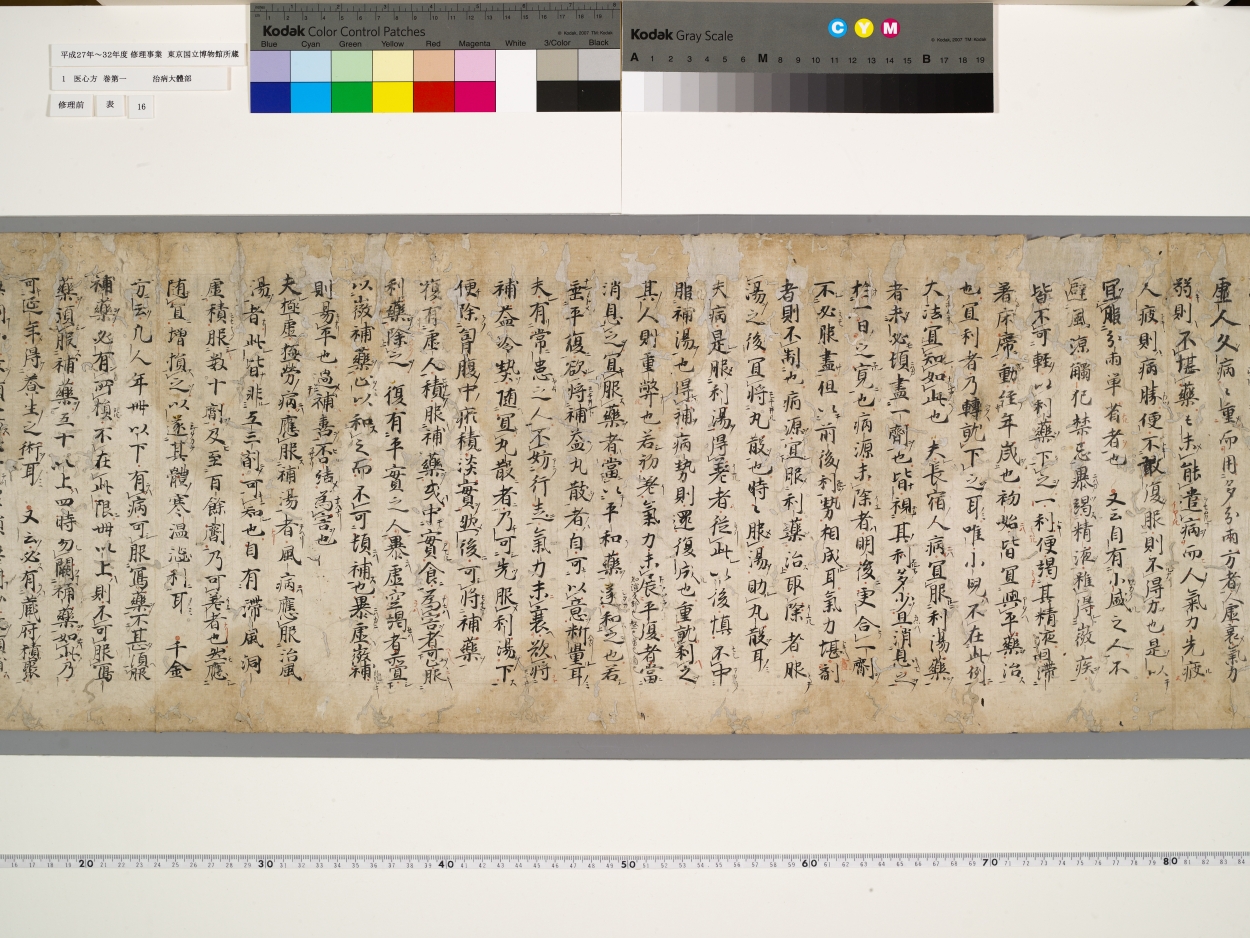 平成27年～32年度 修理事業 東京国立博物館所蔵
1 医心方 巻第一 治病大體部
修理前 表 16
Kodak Color Control Patches
© Kodak, 2007 TM: Kodak
Blue Cyan Green Yellow Red Magenta White 3/Color Black
Kodak Gray Scale
C Y M
© Kodak, 2007 TM: Kodak
A 1 2 3 4 5 6 M 8 9 10 11 12 13 14 15 B 17 18 19
虚人久病々重而用多分兩方者虚衰氣力
弱則不堪藥々未能遣病而人氣力先疲
人疲則病勝便不敢復服則不得力也是以
宜服分兩單省者也 又云自有小盛之人不
避風涼觸犯禁忌暴竭精液雖得微疾
皆不可輕以利藥下之一利便竭其精液困滯
著床席動經年歳也初始皆宜與平藥治
也宜利者乃轉就下之耳唯小兒不在此例
大法宜知如此也 夫長宿人病宜服利湯藥
者未必須盡一劑也皆視其利多少且消息之
於一日之寛也病源未除者明後更合一劑
不必服盡但以前後利勢相成耳氣力堪劑
者則不制也病源宜服利藥治取除者服
湯之後宜將丸散也時々服湯助丸散耳
夫病是服利湯得差者從此以後慎不中
服補湯也得補病勢則還復成也重就利之
其人則重弊也若初差氣力未展平復者當
消息之宜服藥者當以平和藥逐和之也若
垂平復欲將補益丸散者自可以意斷量耳
夫有常患之人不妨行走氣力未衰欲將
補益冷熱随宜丸散者乃可先服利湯下
便除胷腹中瘀積淡實然後可將補藥
復有虚人積服補藥或中實食為害者可服
利藥除之 復有平實之人暴虚空竭者宜
以微補藥止以和之而不可頓補也暴虚微補
則易平也過補喜否結為害也
夫極虚極勞病應服補湯者風病應服治風
湯者此皆非五三劑可知也自有滯風洞
虚積服數十劑及至百餘劑乃可差者也然應
随宜增損之以逐其體寒温澁利耳 千金
方云凡人年卌以下有病可服寫藥不甚須服
補藥必有所損不在此限卌以上則不可服寫
藥須服補藥五十以上四時勿闕補藥如此乃
可延年時養生之術耳 又云必有藏府積聚
20 30 40 50 60 70 80